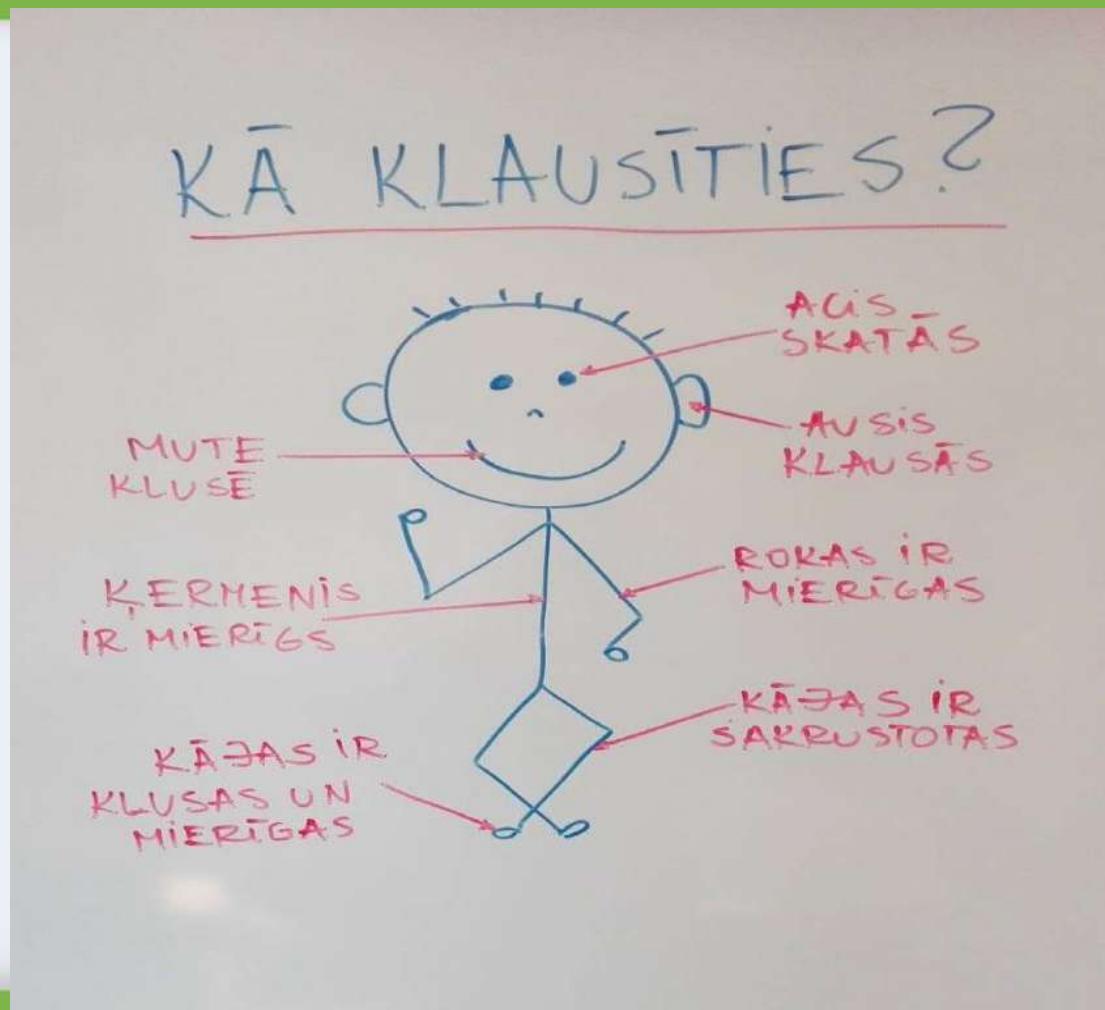 KĀ KLAUSĪTIES?
ACIS
SKATĀS
AUSIS
KLAUSĀS
MUTE
KLUSĒ
ROKAS IR
MIERĪGAS
ĶERMENIS
IR MIERĪGS
KĀJAS IR
SAKRUSTOTAS
KĀJAS IR
KLUSAS UN
MIERĪGAS